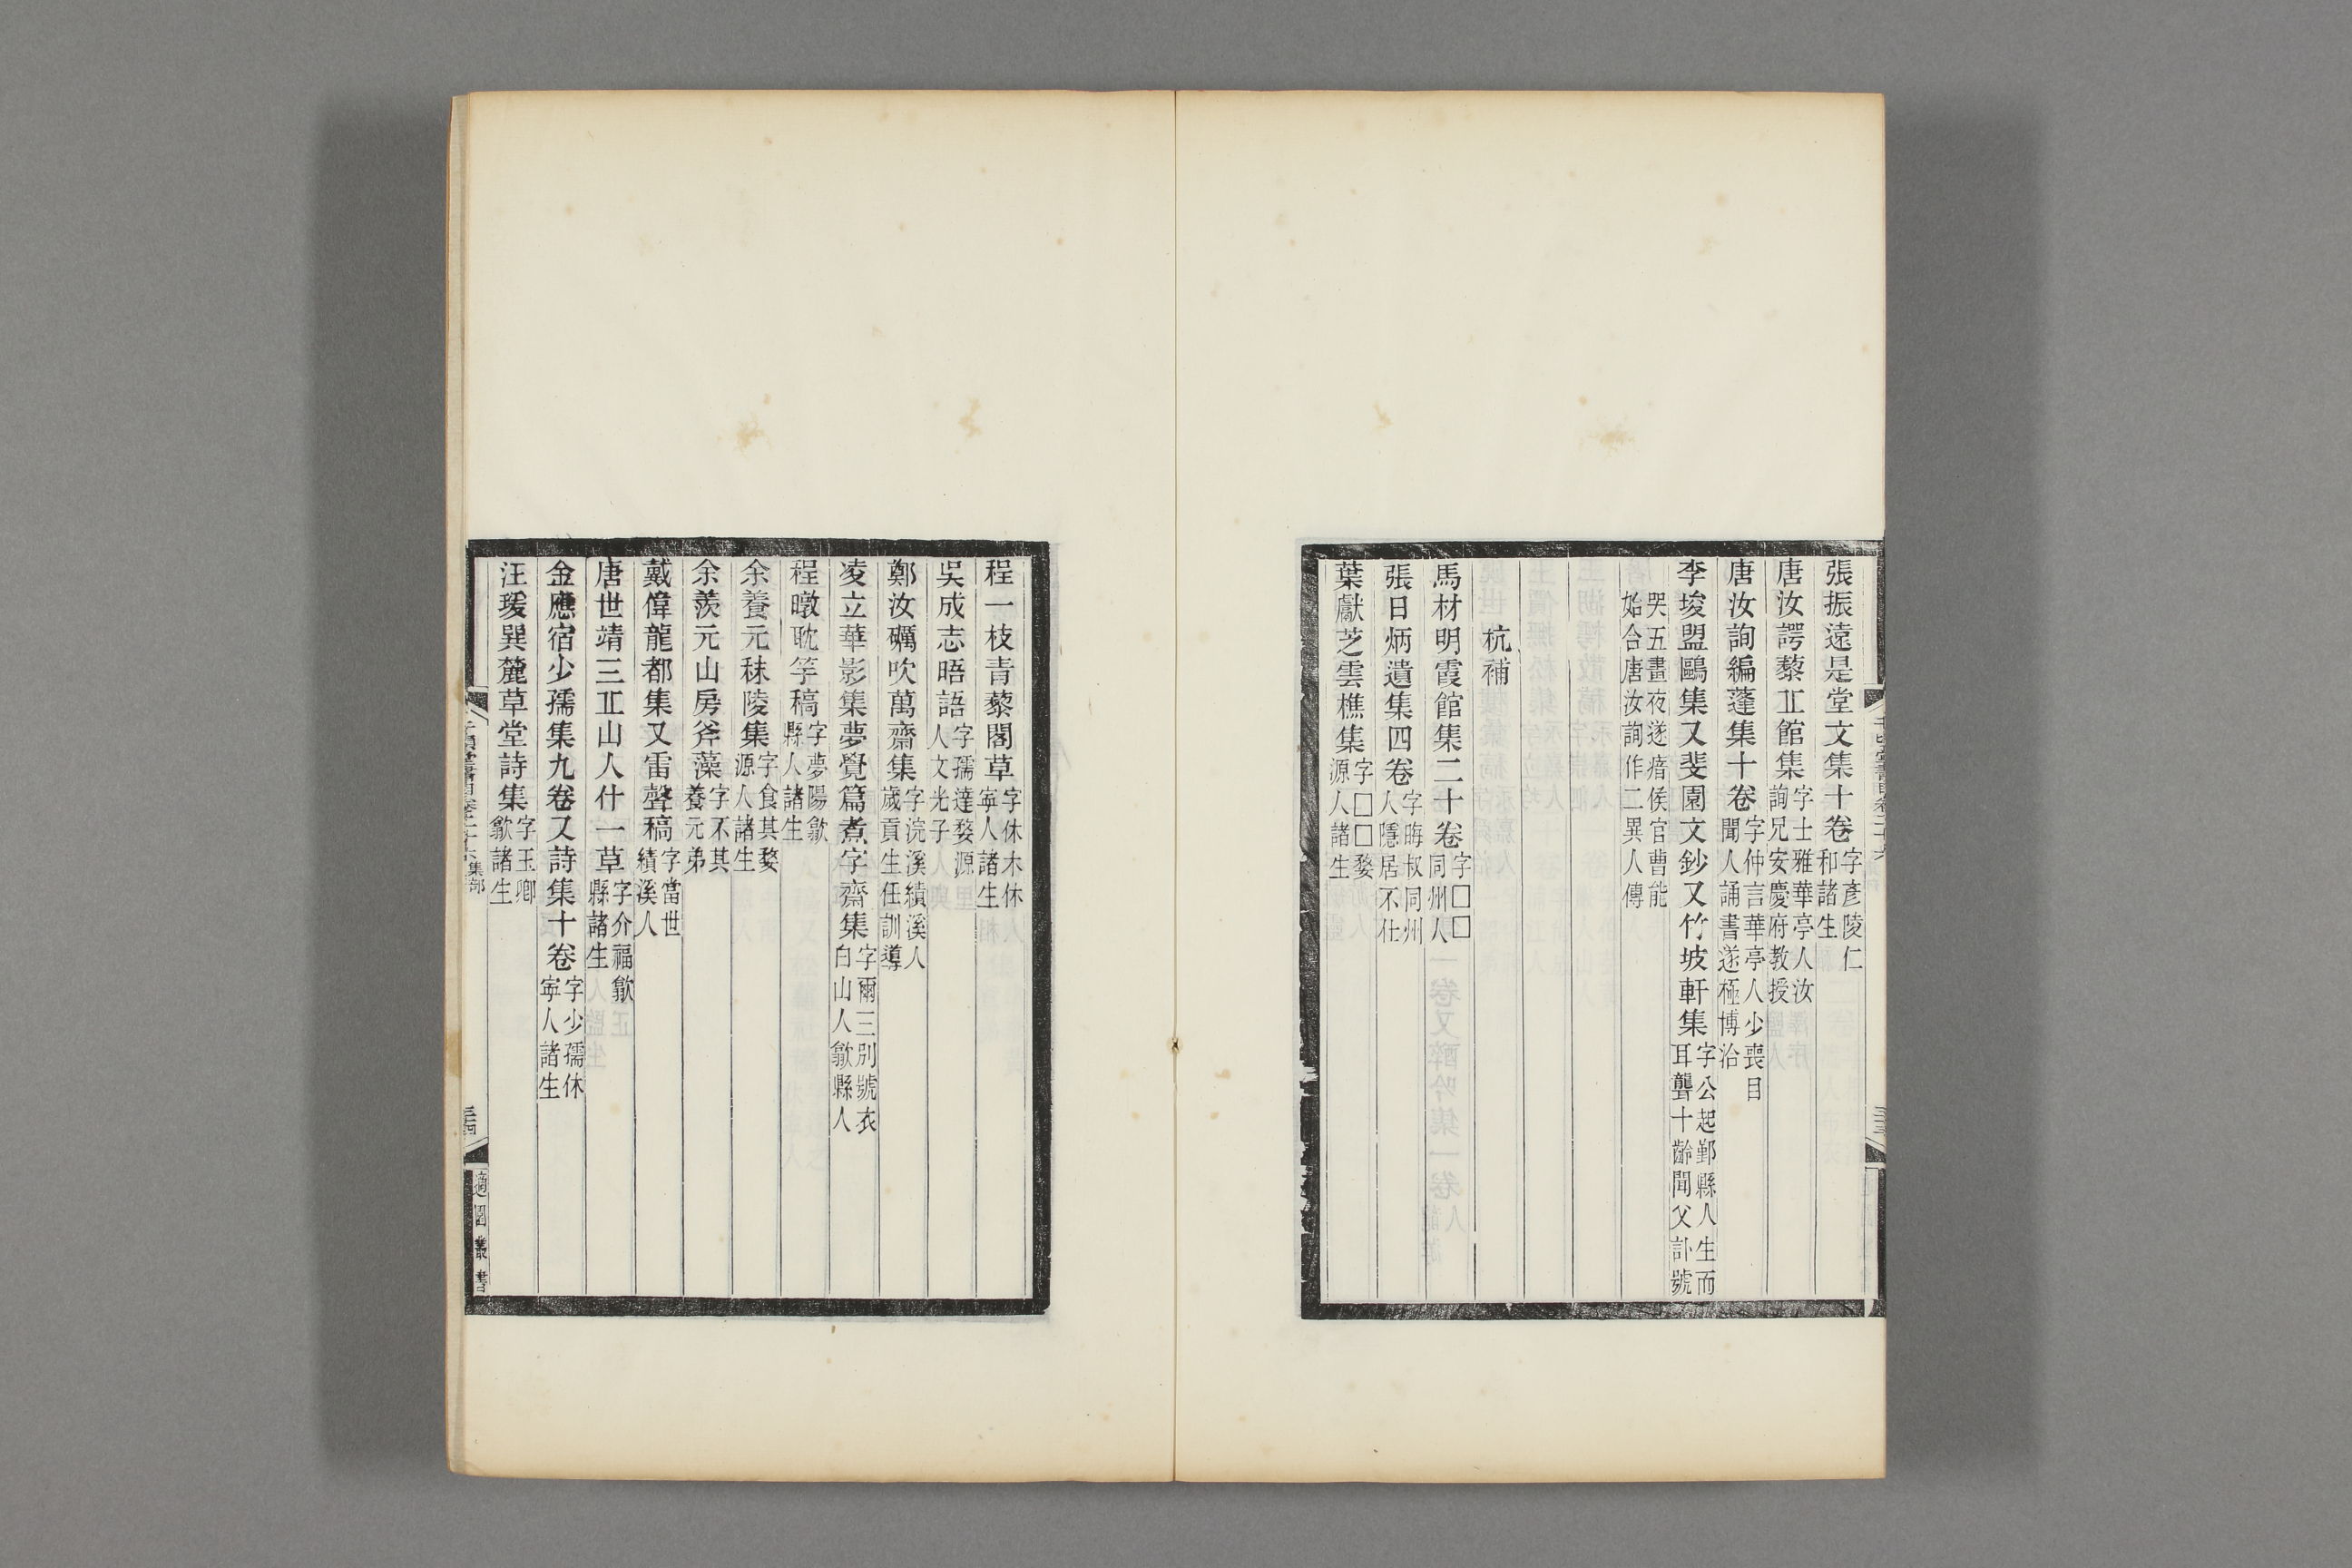 張振遠是堂文集十卷字彥陵仁和諸生
唐汝諤藜丠館集字士雅華亭人汝詢兄安慶府教授
唐汝詢編蓬集十卷字仲言華亭人少喪目聞人誦書遂極博洽
李埈盟鷗集又斐園文鈔又竹坡軒集字公起鄞縣人生而耳聾十齡聞父訃號
哭五晝夜遂瘖侯官曹能始合唐汝詢作二異人傳
杭補
馬材明霞館集二十卷字□□同州人
張日炳遺集四卷字晦叔同州人隱居不仕
葉獻芝雲樵集字□□婺源人諸生
程一枝青藜閣草字休木休寧人諸生
吳成志晤語字孺達婺源人文光子
鄭汝礪吹萬齋集字浣溪績溪人歲貢生任訓導
凌立華影集夢覺篇煮字齋集字爾三別號衣白山人歙縣人
程暾耽竽稿字夢陽歙縣人諸生
余養元秣陵集字食其婺源人諸生
余羨元山房斧藻字不其養元弟
戴偉龍都集又雷聲稿字當世績溪人
唐世靖三丠山人什一草字介福歙縣諸生
金應宿少孺集九卷又詩集十卷字少孺休寧人諸生
汪瑗巽麓草堂詩集字玉卿歙諸生
千頃堂書目卷二十六集部
三十四
適園叢書